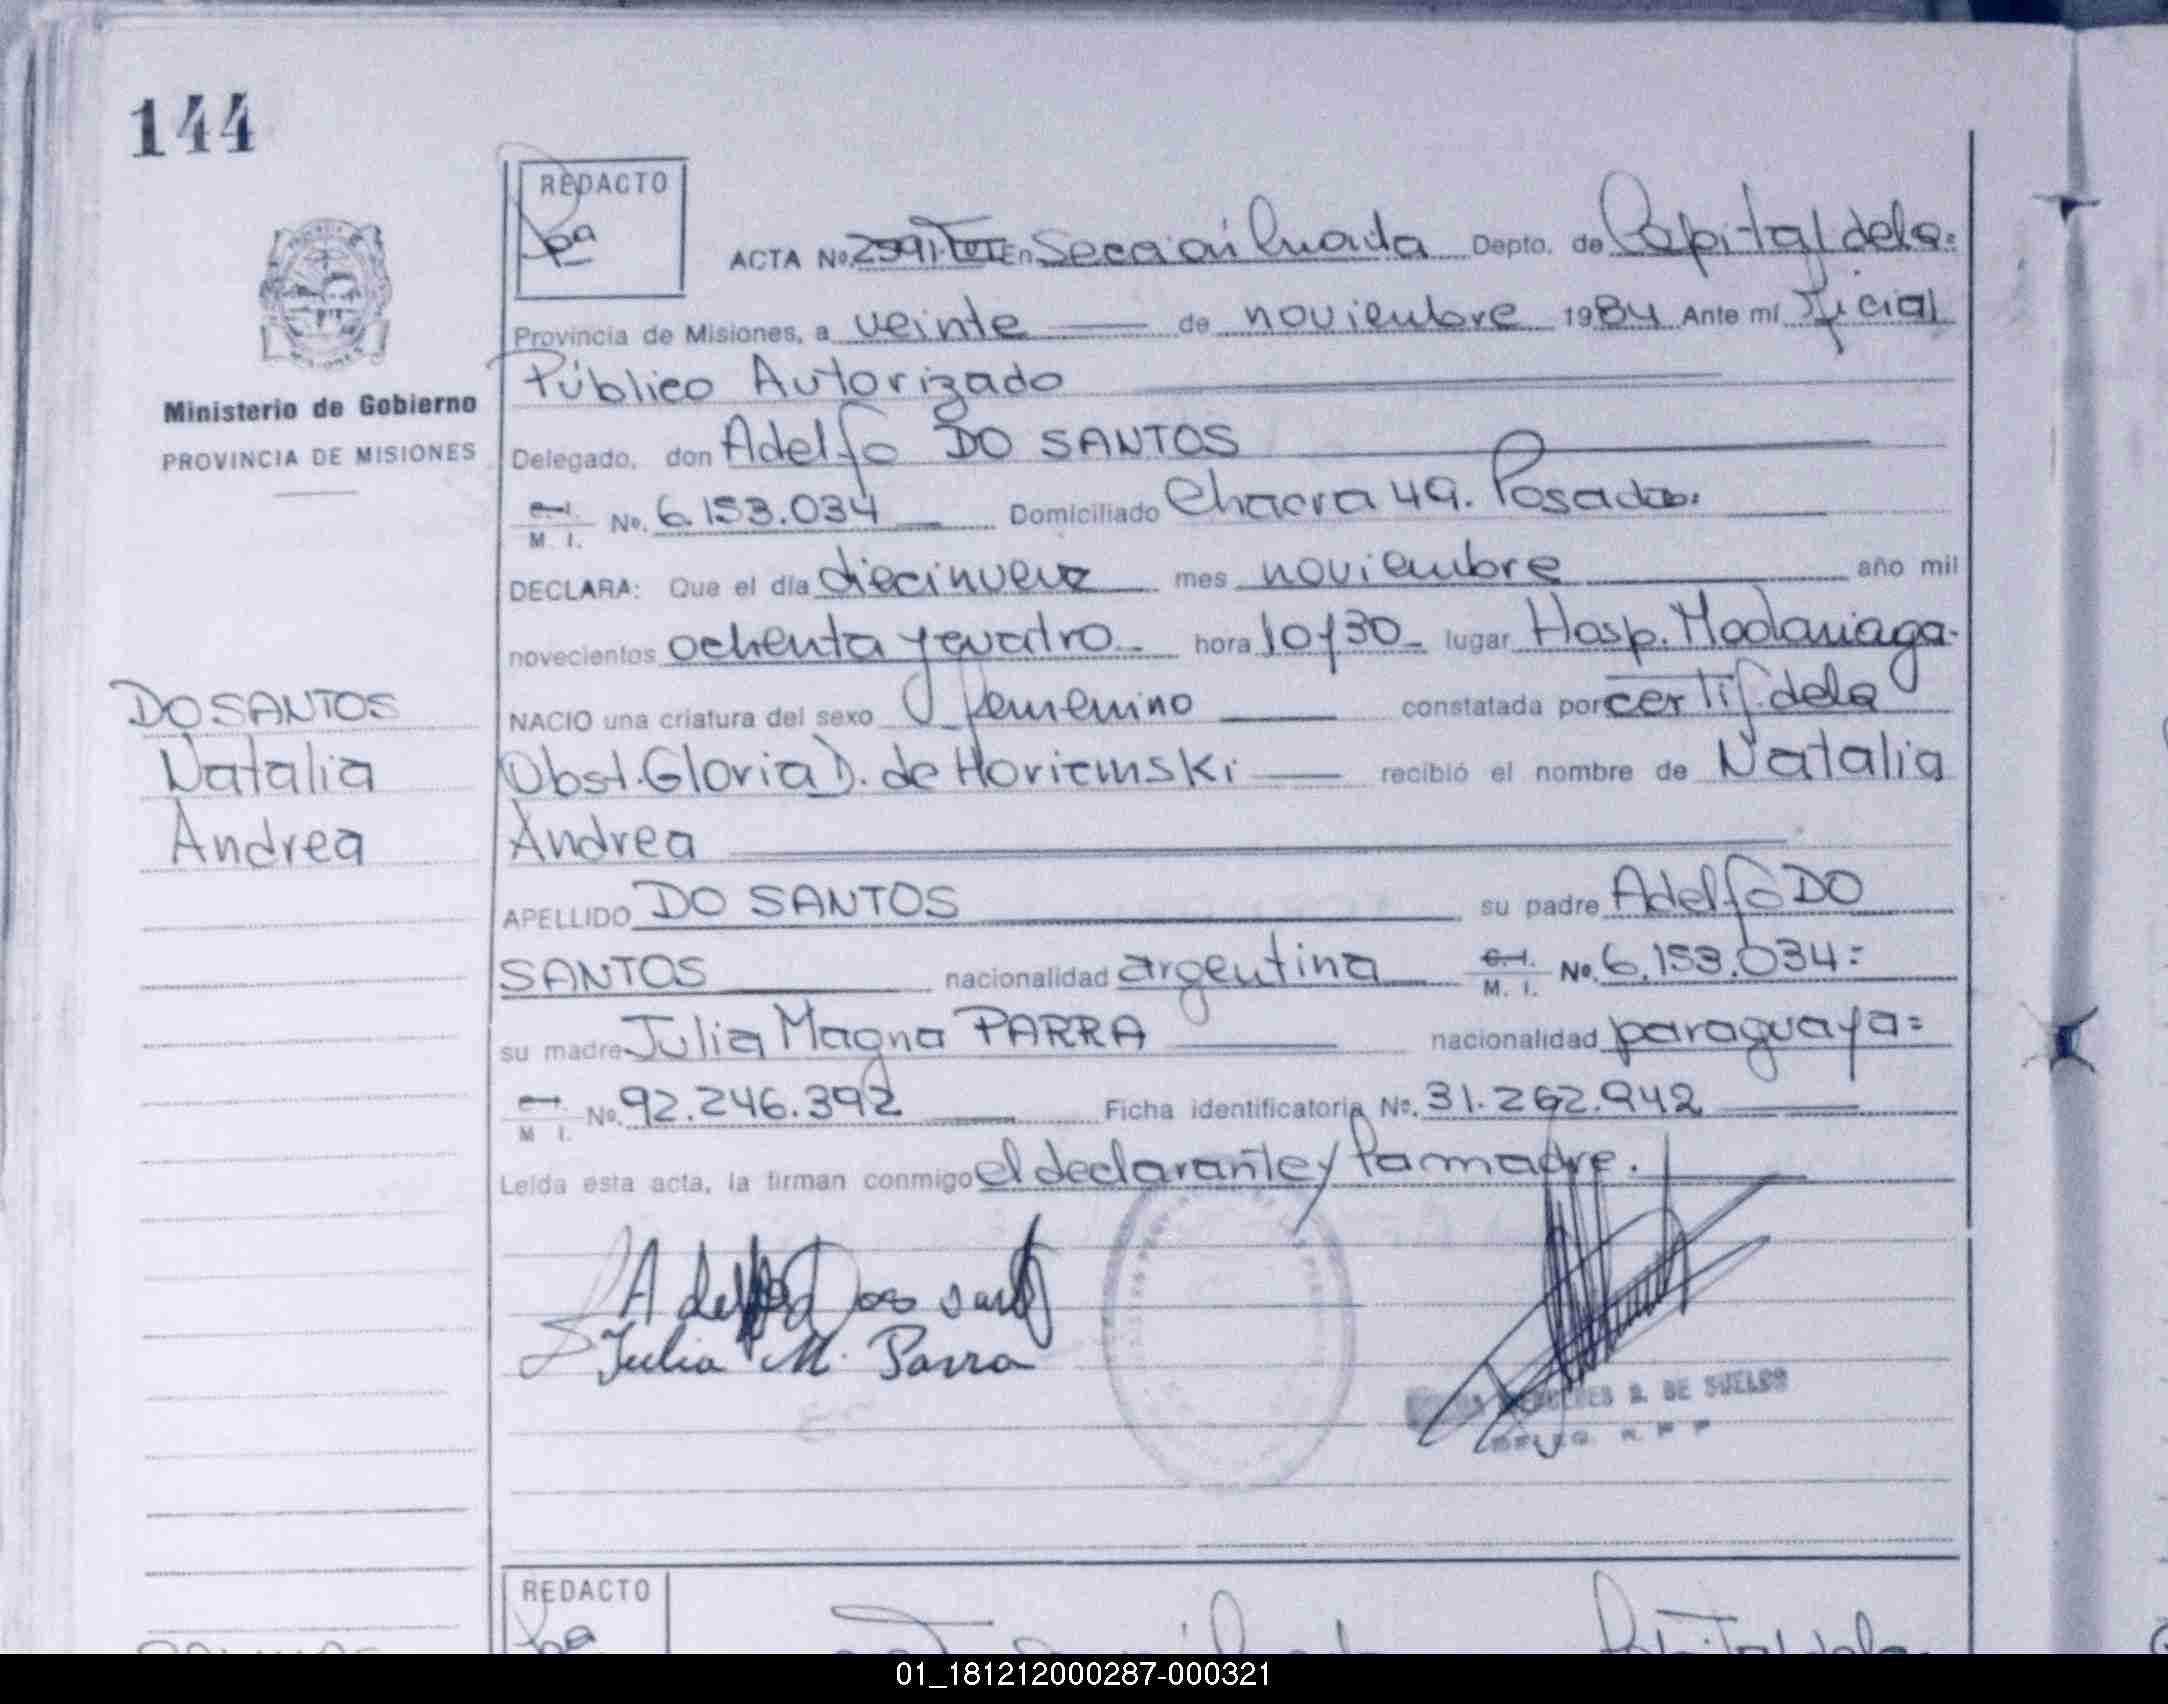 144
REDACTO
ACTA No. 2591 En Sección Cuarta Depto. de Capital de la
Provincia de Misiones, a veinte de noviembre 1984 Ante mí Oficial
Público Autorizado
Ministerio de Gobierno
PROVINCIA DE MISIONES
Delegado, don Adelfo DO SANTOS
M. I. No. 6.153.034 Domiciliado Chacra 49. Posadas.
DECLARA: Que el día diecinueve mes noviembre año mil
novecientos ochenta y cuatro hora 10y30 lugar Hosp. Madariaga.
NACIO una criatura del sexo femenino constatada por certif. de la
Obst. Gloria D. de recibió el nombre de Natalia
Andrea
DO SANTOS
Natalia
Andrea
APELLIDO DO SANTOS su padre Adelfo DO
SANTOS nacionalidad argentina C.I. M. I. No. 6.153.034=
su madre Julia Magna PARRA nacionalidad paraguaya=
M I. No. 92.246.392 Ficha identificatoria No. 31.262.942
Leída esta acta, la firman conmigo el declarante y la madre.
Adelfo Dos
Julia M. Parra
B. DE SUELOS
REDACTO
01_181212000287-000321